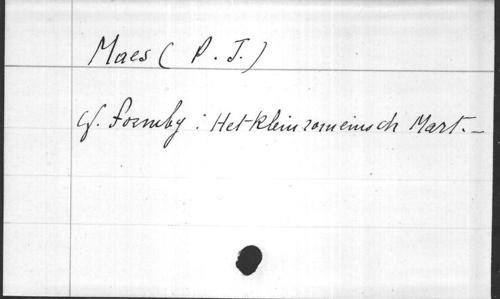 Maes ( P. J. )
cf. Formby : Het klein romeinsch Mart. –